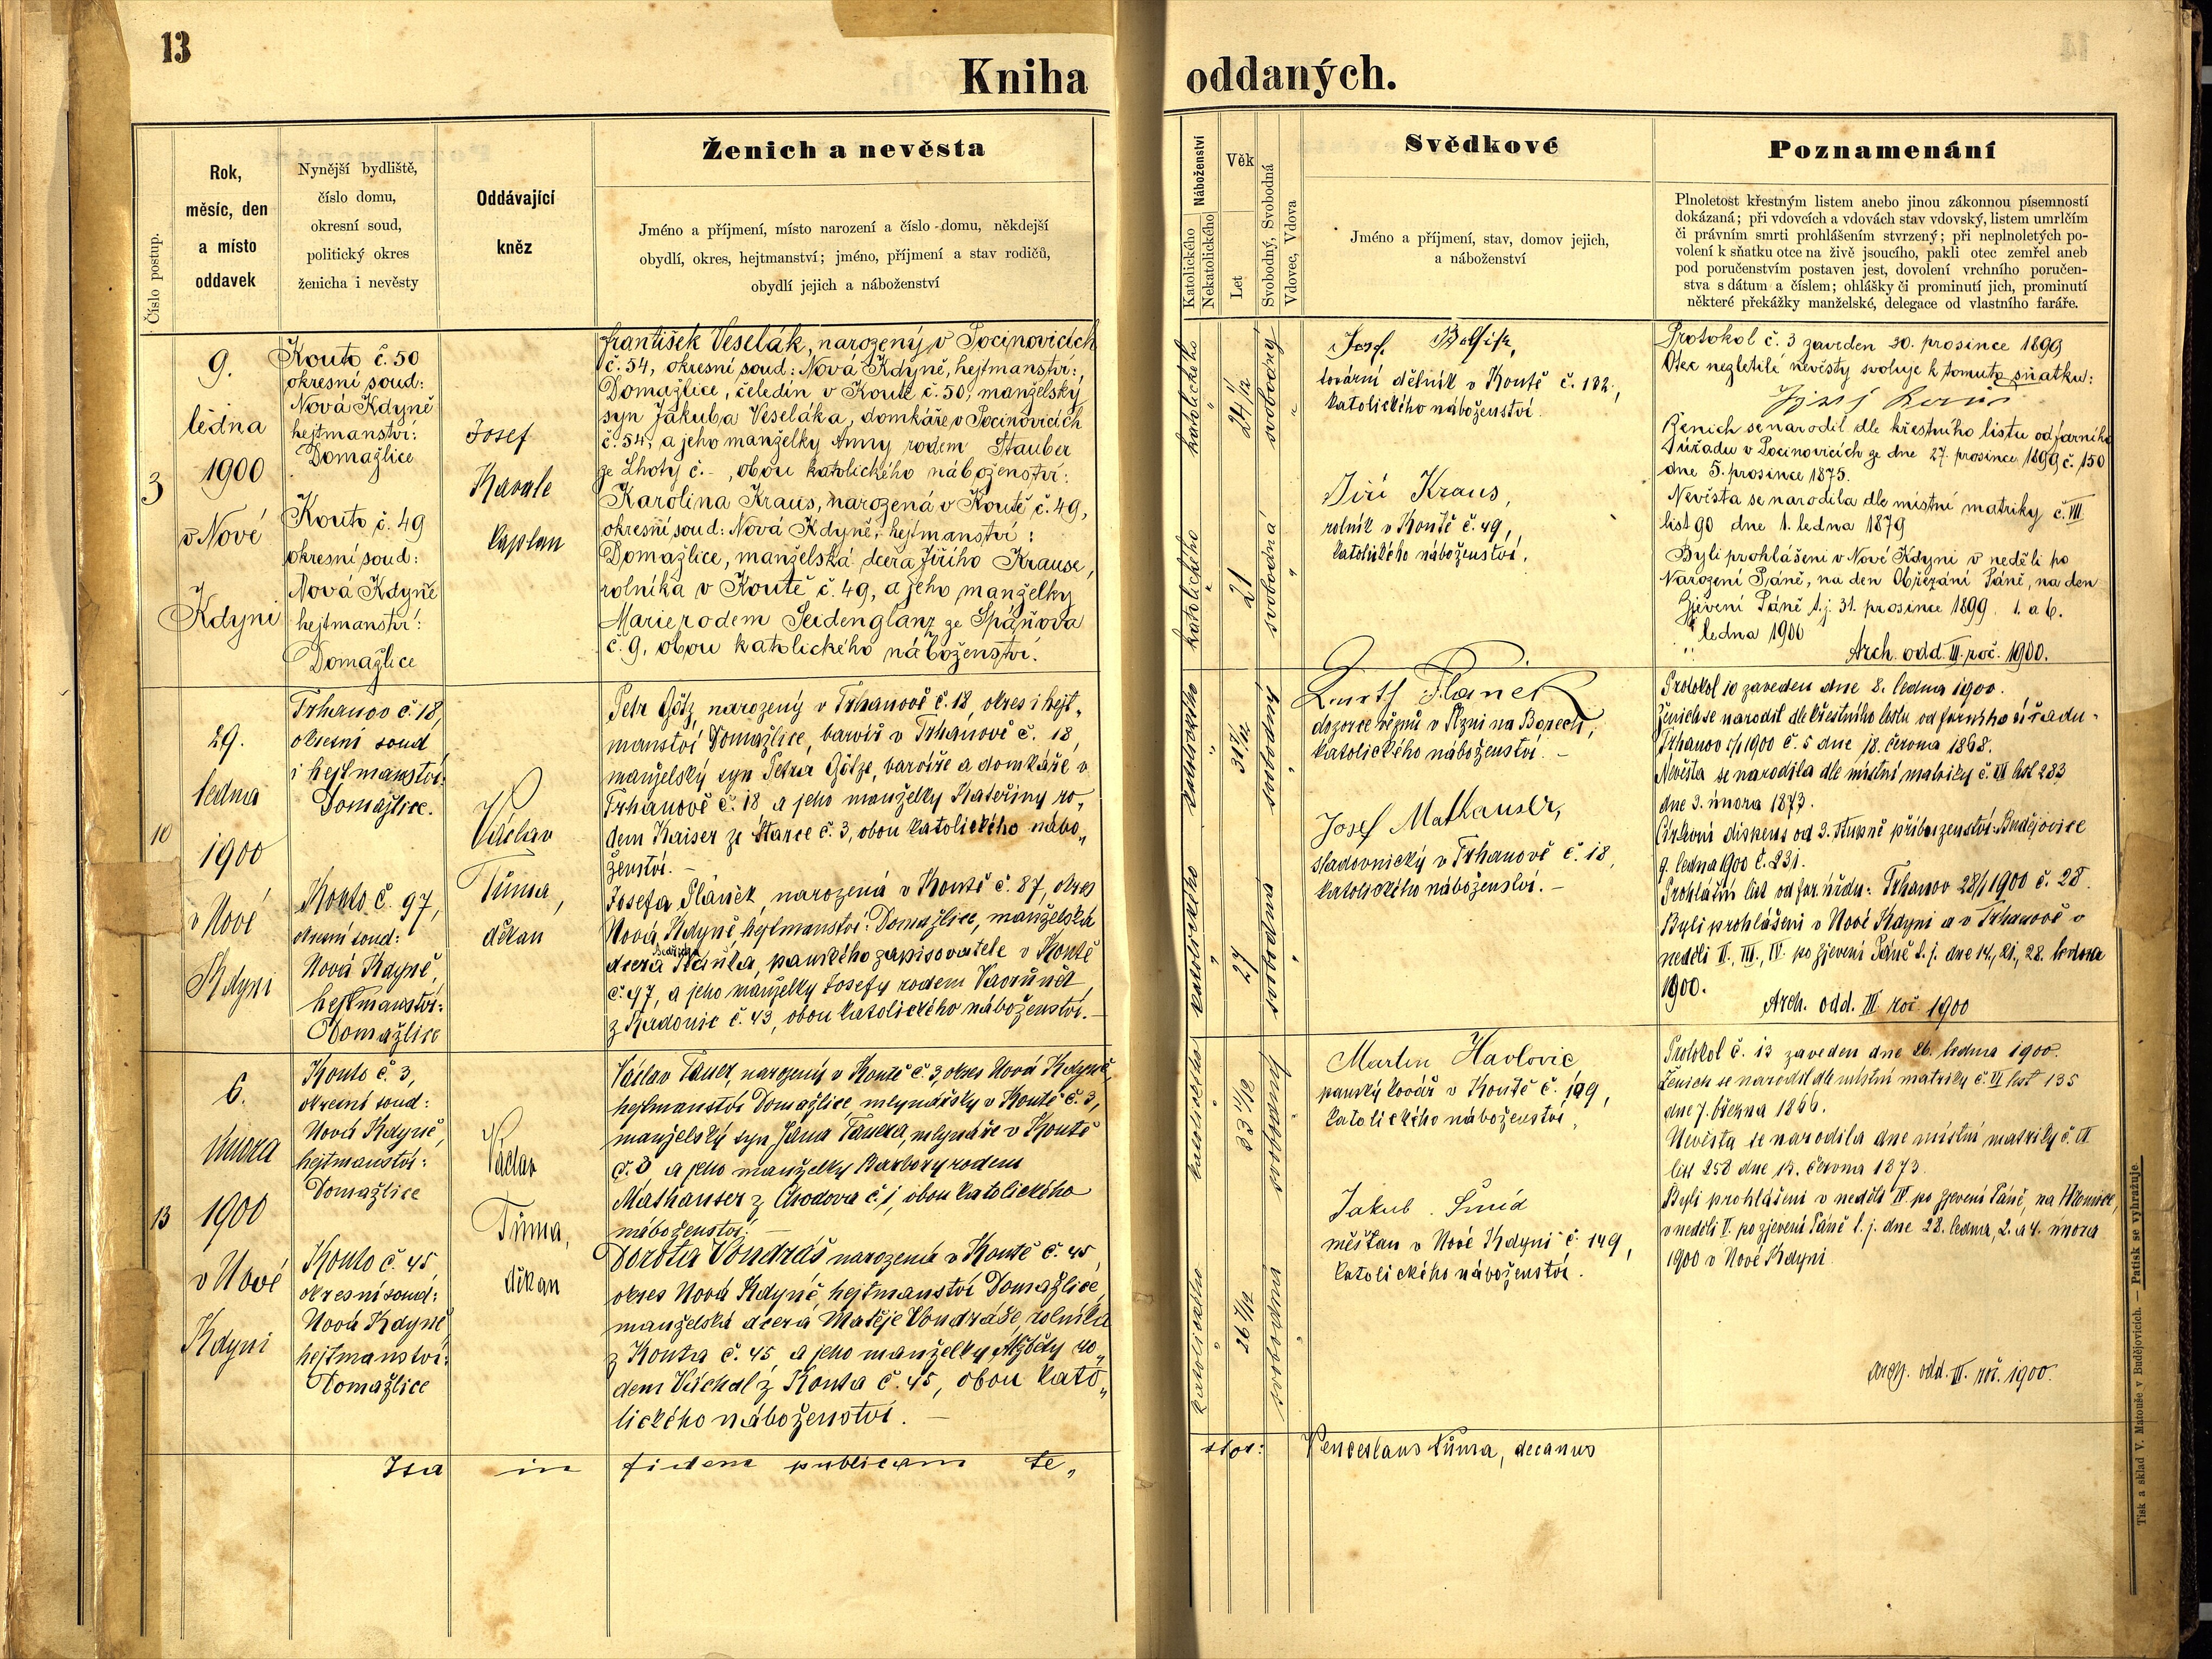 13
Kniha oddaných.
Číslo postup.
Rok,
měsíc, den
a místo
oddavek
Nynější bydliště,
číslo domu,
okresní soud,
politický okres
ženicha i nevěsty
Oddávající
kněz
Ženich a nevěsta
Jméno a příjmení, místo narození a číslo domu, někdejší
obydlí, okres, hejtmanství; jméno, příjmení a stav rodičů,
obydlí jejich a náboženství
Náboženství
Katolického
Nekatolického
Věk
Let
Svobodný, Svobodná
Vdovec, Vdova
Svědkové
Jméno a příjmení, stav, domov jejich,
a náboženství
Poznamenání
Plnoletost křestným listem anebo jinou zákonnou písemností
dokázaná; při vdovcích a vdovách stav vdovský, listem umrlčím
či právním smrti prohlášením stvrzený; při neplnoletých po-
volení k sňatku otce na živě jsoucího, pakli otec zemřel aneb
pod poručenstvím postaven jest, dovolení vrchního poručen-
stva s dátum a číslem; ohlášky či prominutí jich, prominutí
některé překážky manželské, delegace od vlastního faráře.
3
9.
ledna
1900
v Nové
Kdyni
Kouto č. 50
okresní soud:
Nová Kdyně
hejtmanství:
Domažlice
Kouto č. 49
okresní soud:
Nová Kdyně
hejtmanství:
Domažlice
Josef
Kavale
kaplan
František Veselák, narozený v Pocinovicích
č. 54, okresní soud: Nová Kdyně, hejtmanství:
Domažlice, čeledín v Koutě č. 50, manželský
syn Jakuba Veseláka, domkáře v Pocinovicích
č. 54, a jeho manželky Anny rodem Stauber
ze Lhoty č. -, obou katolického náboženství:
Karolina Kraus, narozená v Koutě č. 49,
okresní soud: Nová Kdyně, hejtmanství:
Domažlice, manželská dcera Jiřího Krause,
rolníka v Koutě č. 49, a jeho manželky
Marie rodem Seidenglanz ze Spáňova
č. 9, obou katolického náboženství.
katolického
"
katolického
"
24 1/12
21
svobodný
"
svobodná
"
Josef
tovární dělník v Koutě č. 182,
katolického náboženství.
Jiří Kraus,
rolník v Koutě č. 49,
katolického náboženství.
Protokol č. 3 zaveden 20. prosince 1899
Otec nezletilé nevěsty svoluje k tomuto sňatku:
Ženich se narodil dle křestního listu od farního
úřadu v Pocinovicích ze dne 27. prosince 1899 č. 150
dne 5. prosince 1875.
Nevěsta se narodila dle místní matriky č. VII
list 90 dne 1. ledna 1879
Byli prohlášeni v Nové Kdyni v neděli po
Narození Páně, na den Obřezání Páně, na den
Zjevení Páně t. j. 31. prosince 1899. 1. a 6.
ledna 1900
Arch. odd. III. roč. 1900.
10
29.
ledna
1900
v Nové
Kdyni
Trhanov č. 18,
okresní soud
i hejtmanství:
Domažlice.
Kouto č. 97,
okresní soud:
Nová Kdyně,
hejtmanství:
Domažlice
Václav
Tůma,
děkan
Petr Götz, narozený v Trhanově č. 18, okres i hejt„
manství Domažlice, barvíř v Trhanově č. 18,
manželský syn Petra Götze, barvíře a domkáře v
Trhanově č. 18 a jeho manželky Kateřiny ro„
dem Kaiser ze Starce č. 3, obou katolického nábo„
ženství. -
Josefa Pláněk, narozená v Koutě č. 87, okres
Nová Kdyně, hejtmanství: Domažlice, manželská
dcera Pláňka, panského zapisovatele v Koutě
č. 97, a jeho manželky Josefy rodem Vavřinět
z Radonic č. 43, obou katolického náboženství. -
katolického
"
katolického
"
31 7/12
27
svobodný
"
svobodná
"
Pláněk
dozorce vězňů v Plzni na Borech,
katolického náboženství. -
Josef Mathauser,
sladovnický v Trhanově č. 18,
katolického náboženství. -
Protokol 10 zaveden dne 8. ledna 1900.
Ženich se narodil dle křestního listu od farního úřadu
Trhanov 5/1 1900 č. 5 dne 18. června 1868.
Nevěsta se narodila dle místní matriky č. VI list 283
dne 3. února 1873.
Církevní dispens od 3. stupně příbuzenství: Budějovice
9. ledna 1900 č. 231.
Prohlášní list od far. úřadu: Trhanov 28/1 1900 č. 28
Byli prohlášeni v Nové Kdyni a v Trhanově v
neděli II., III., IV. po zjevení Páně t. j. dne 14., 21., 28. ledna
1900.
Arch. odd. III roč 1900
13
6.
února
1900
v Nové
Kdyni
Kouto č. 3,
okresní soud:
Nová Kdyně,
hejtmanství:
Domažlice
Kouto č. 45
okresní soud:
Nová Kdyně
hejtmanství:
Domažlice
Václav
Tůma,
děkan
Václav Tauer, narozený v Koutě č. 3, okres Nová Kdyně,
hejtmanství Domažlice, mlynářský v Koutě č. 3,
manželský syn Jana Tauera, mlynáře v Koutě
č. 3 a jeho manželky Barbory rodem
Mathauser z Chodova č. 1, obou katolického
náboženství. -
Dorota Vondráš narozená v Koutě č. 45,
okres Nová Kdyně, hejtmanství Domažlice,
manželská dcera Matěje Vondráše, rolníka
z Kouta č. 45 a jeho manželky Alžběty ro„
dem Váchal z Kouta č. 45, obou kato„
lického náboženství. -
katolického
"
katolického
"
33 11/12
26 7/12
svobodný
"
svobodná
"
Martin Havlovic
panský kovář v Koutě č. 199,
katolického náboženství,
Jakub Šmíd
měšťan v Nové Kdyni č. 149,
katolického náboženství.
Protokol č. 13 zaveden dne 26. ledna 1900.
Ženich se narodil dle místní matriky č. VI list 135
dne 7. března 1866.
Nevěsta se narodila dne místní matriky č. VI
list 258 dne 12. června 1873.
Byli prohlášeni v neděli IV. po zjevení Páně, na Hromice,
v neděli V. po zjevení Páně t. j. dne 28. ledna, 2. a 4. února
1900 v Nové Kdyni
Arch. odd. III. roč. 1900.
Ita in fidem publicam te„
stor: Venceslaus Tůma, decanus
Tisk a sklad V. Matouše v Budějovicích. — Patisk se vyhražuje.